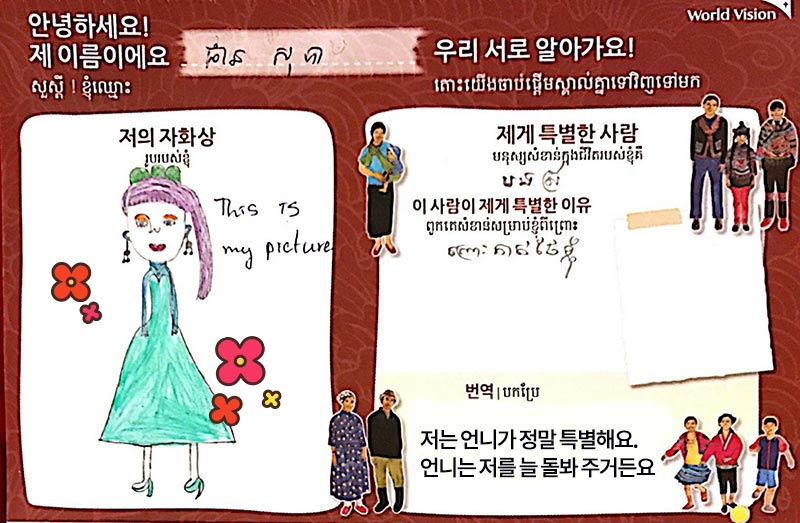 World Vision
안녕하세요!
제 이름이에요
សួស្តី ! ខ្ញុំឈ្មោះ
ផាន សុហា
우리 서로 알아가요!
តោះយើងចាប់ផ្តើមស្គាល់គ្នាទៅវិញទៅមក
저의 자화상
រូបរបស់ខ្ញុំ
This is
my picture
제게 특별한 사람
មនុស្សសំខាន់ក្នុងជីវិតរបស់ខ្ញុំគឺ
បង
이 사람이 제게 특별한 이유
ពួកគេសំខាន់សម្រាប់ខ្ញុំពីព្រោះ
ព្រោះគាត់ថែខ្ញុំ
번역 | បកប្រែ
저는 언니가 정말 특별해요.
언니는 저를 늘 돌봐 주거든요